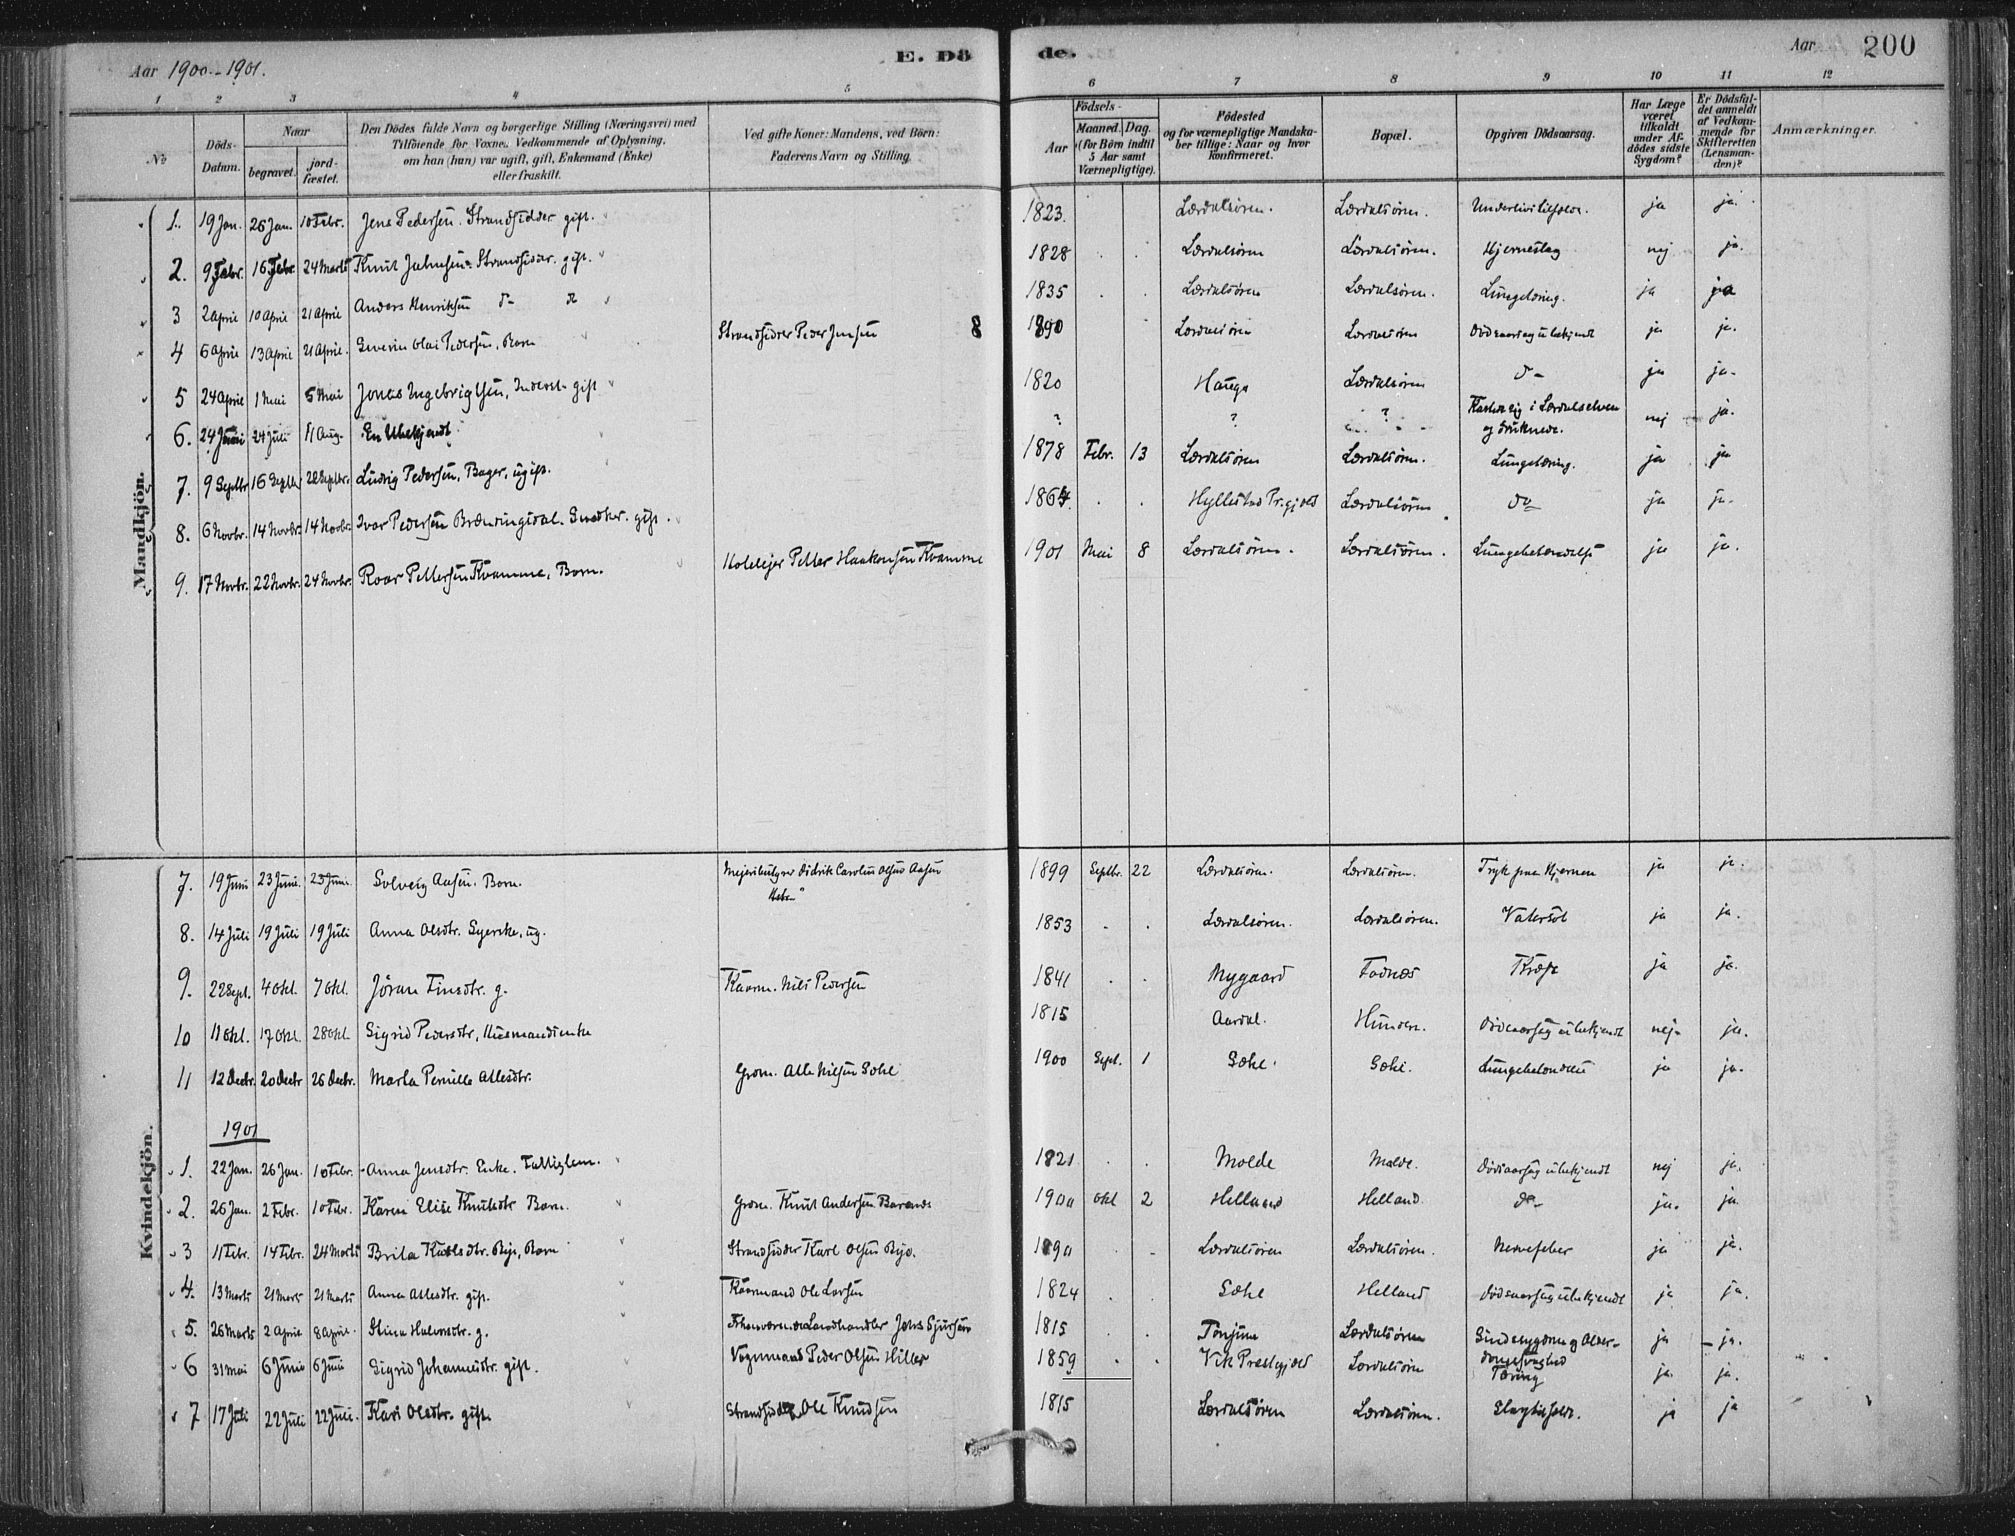 Aar 1900-1901.
E. Dö
de.
Aar
200
1 2 3 4 5 6 7 8 9 10 11 12
No
Döds-
Datum.
Naar
begravet.
jord-
fæstet.
Den Dödes fulde Navn og borgerlige Stilling (Næringsvei) med
Tilföiende for Voxnes Vedkommende af Oplysning,
om han (hun) var ugift, gift, Enkemand (Enke)
eller fraskilt.
Ved gifte Koner: Mandens, ved Börn:
Faderens Navn og Stilling.
Födsels-
Aar
Maaned. Dag.
(for Börn indtil
5 Aar samt
Værnepligtige).
Födested
og for værnepligtige Mandska-
ber tillige: Naar og hvor
konfirmeret.
Bopæl.
Opgiven Dödsaarsag.
Har Læge
været
tilkaldt
under Af-
dödes sidste
Sygdom?
Er Dödsfal-
det anmeldt
af Vedkom-
mende for
Skifteretten
(Lensman-
den)?
Anmærkninger.
Mandkjön.
1. 19 Jan. 26 Jan. 10 Febr. Jens Pedersen. Strandsidder gift. 1823. Lærdalsören. Lærdalsören. Underlivslidelse. ja ja.
2. 9 Febr. 16 Febr. 24 Marts Knut Strandsidder. gift. 1828 Lærdalsören Lærdalsören. Hjerneslag nej ja.
3 2 April 10 April 21 April Anders Henriksen 1835 Lærdalsören Lærdalsören. Lungetæring. ja ja
4 6 April 13 April 21 April. Severin Olai Pedersen, Barn Strandsidder Peder Jensen 8 1890 Lærdalsören Lærdalsören Dödsaarsag ubekjendt ja ja.
5 24 April 1 Mai 5 Mai Jonas Ingebrigtsen, Inderst gift 1820 Hauge Lærdalsören do ja ja.
6. 24 Juni 24 Juli 11 Aug. En Ubekjendt ? ? ? Kastede sig i Lærdalselven
og druknede. nej ja.
7. 9 Septbr 16 Septbr 22 Septbr. Ludvig Pedersen, Bager, ugift. 1878 Febr. 13 Lærdalsören Lærdalsören. Lungetæring. ja ja
8. 6 Novbr. 14 Novbr. 14 Novbr. Ivar Pedersen Snedker. gift. 1864 Hyllestad Pr.gjeld Lærdalsören do ja ja.
9. 17 Novbr. 22 Novbr. 24 Novbr. Roar Pettersen Kvamme, Barn. Hotelejer Petter Haakonsen Kvamme 1901 Mai 8 Lærdalsören. Lærdalsören. Lungebetændelse ja ja.
Kvindekjön.
7. 19 Juni 23 Juni. 23 Juni. Solveig Aasen. Barn. Mejeribestyrer Didrik Carolus Olsen Aasen 1899 Septbr. 22 Lærdalsören. Lærdalsören. Tryk paa Hjernen ja ja.
8. 14 Juli 19 Juli 19 Juli Anna Olsdtr. Syerske, ug. 1853 Lærdalsören. Lærdalsören. Vatersot ja ja.
9. 22 Sept. 4 Okt. 7 Okt. Jöran Finsdtr. g. Kaarm. Nils Pedersen 1841 Nygaard Fodnæs Kræft ja ja.
10 11 Okt. 17 Okt. 28 Okt Sigrid Pedersdtr, Husmandsenke 1815 Aardal. Hunderi. Dödsaarsag ubekjendt nej ja.
11 12 Decbr 20 Decbr 26 Decbr. Marta Pernille Atlesdtr. Grdm. Atle Nilsen Sæhl 1900 Sept. 1 Sæhl. Sæhl. ja ja.
1901
1. 22 Jan. 26 Jan. 10 Febr. Anna Jensdtr. Enke. Fattiglem. 1821 Molde Molde. Dödsaarsag ubekjendt nej ja.
2. 26 Jan. 2 Febr. 10 Febr. Karen Elise Knutsdtr Barn. Grdm. Knut Andersen 1900 Okt 2 Helland Helland do ja. ja
3 11 Febr. 14 Febr. 24 Marts Brita Karlsdtr. Rye, Barn Strandsidder Karl Olsen Rye. Lærdalsören Lærdalsören. Nervefeber ja ja.
4. 13 Marts 21 Marts 21 Marts Anna Atlesdtr. gift. Kaarmand Ole Larsen 1824 Sæhl Helland Dödsaarsag ubekjendt ja ja.
5. 26 Marts 2 April 8 April. Stina g. Forhenværende Landhandler Jens Sjursen 1815 Tönjum Lærdalsören Sindssygdom og Alder-
domssvaghed ja ja.
6 31 Mai 6 Juni 6 Juni Sigrid Johannesdtr. gift. Vognmand Peder Olsen Hiller 1859 Vik Prestegjeld Lærdalsören Tæring ja. ja.
7 17 Juli 22 Juli 22 Juli. Kari Olsdtr. gift. Strandsidder Ole Knudsen 1815 Lærdalsören Lærdalsören. Slagtilfælde. ja ja